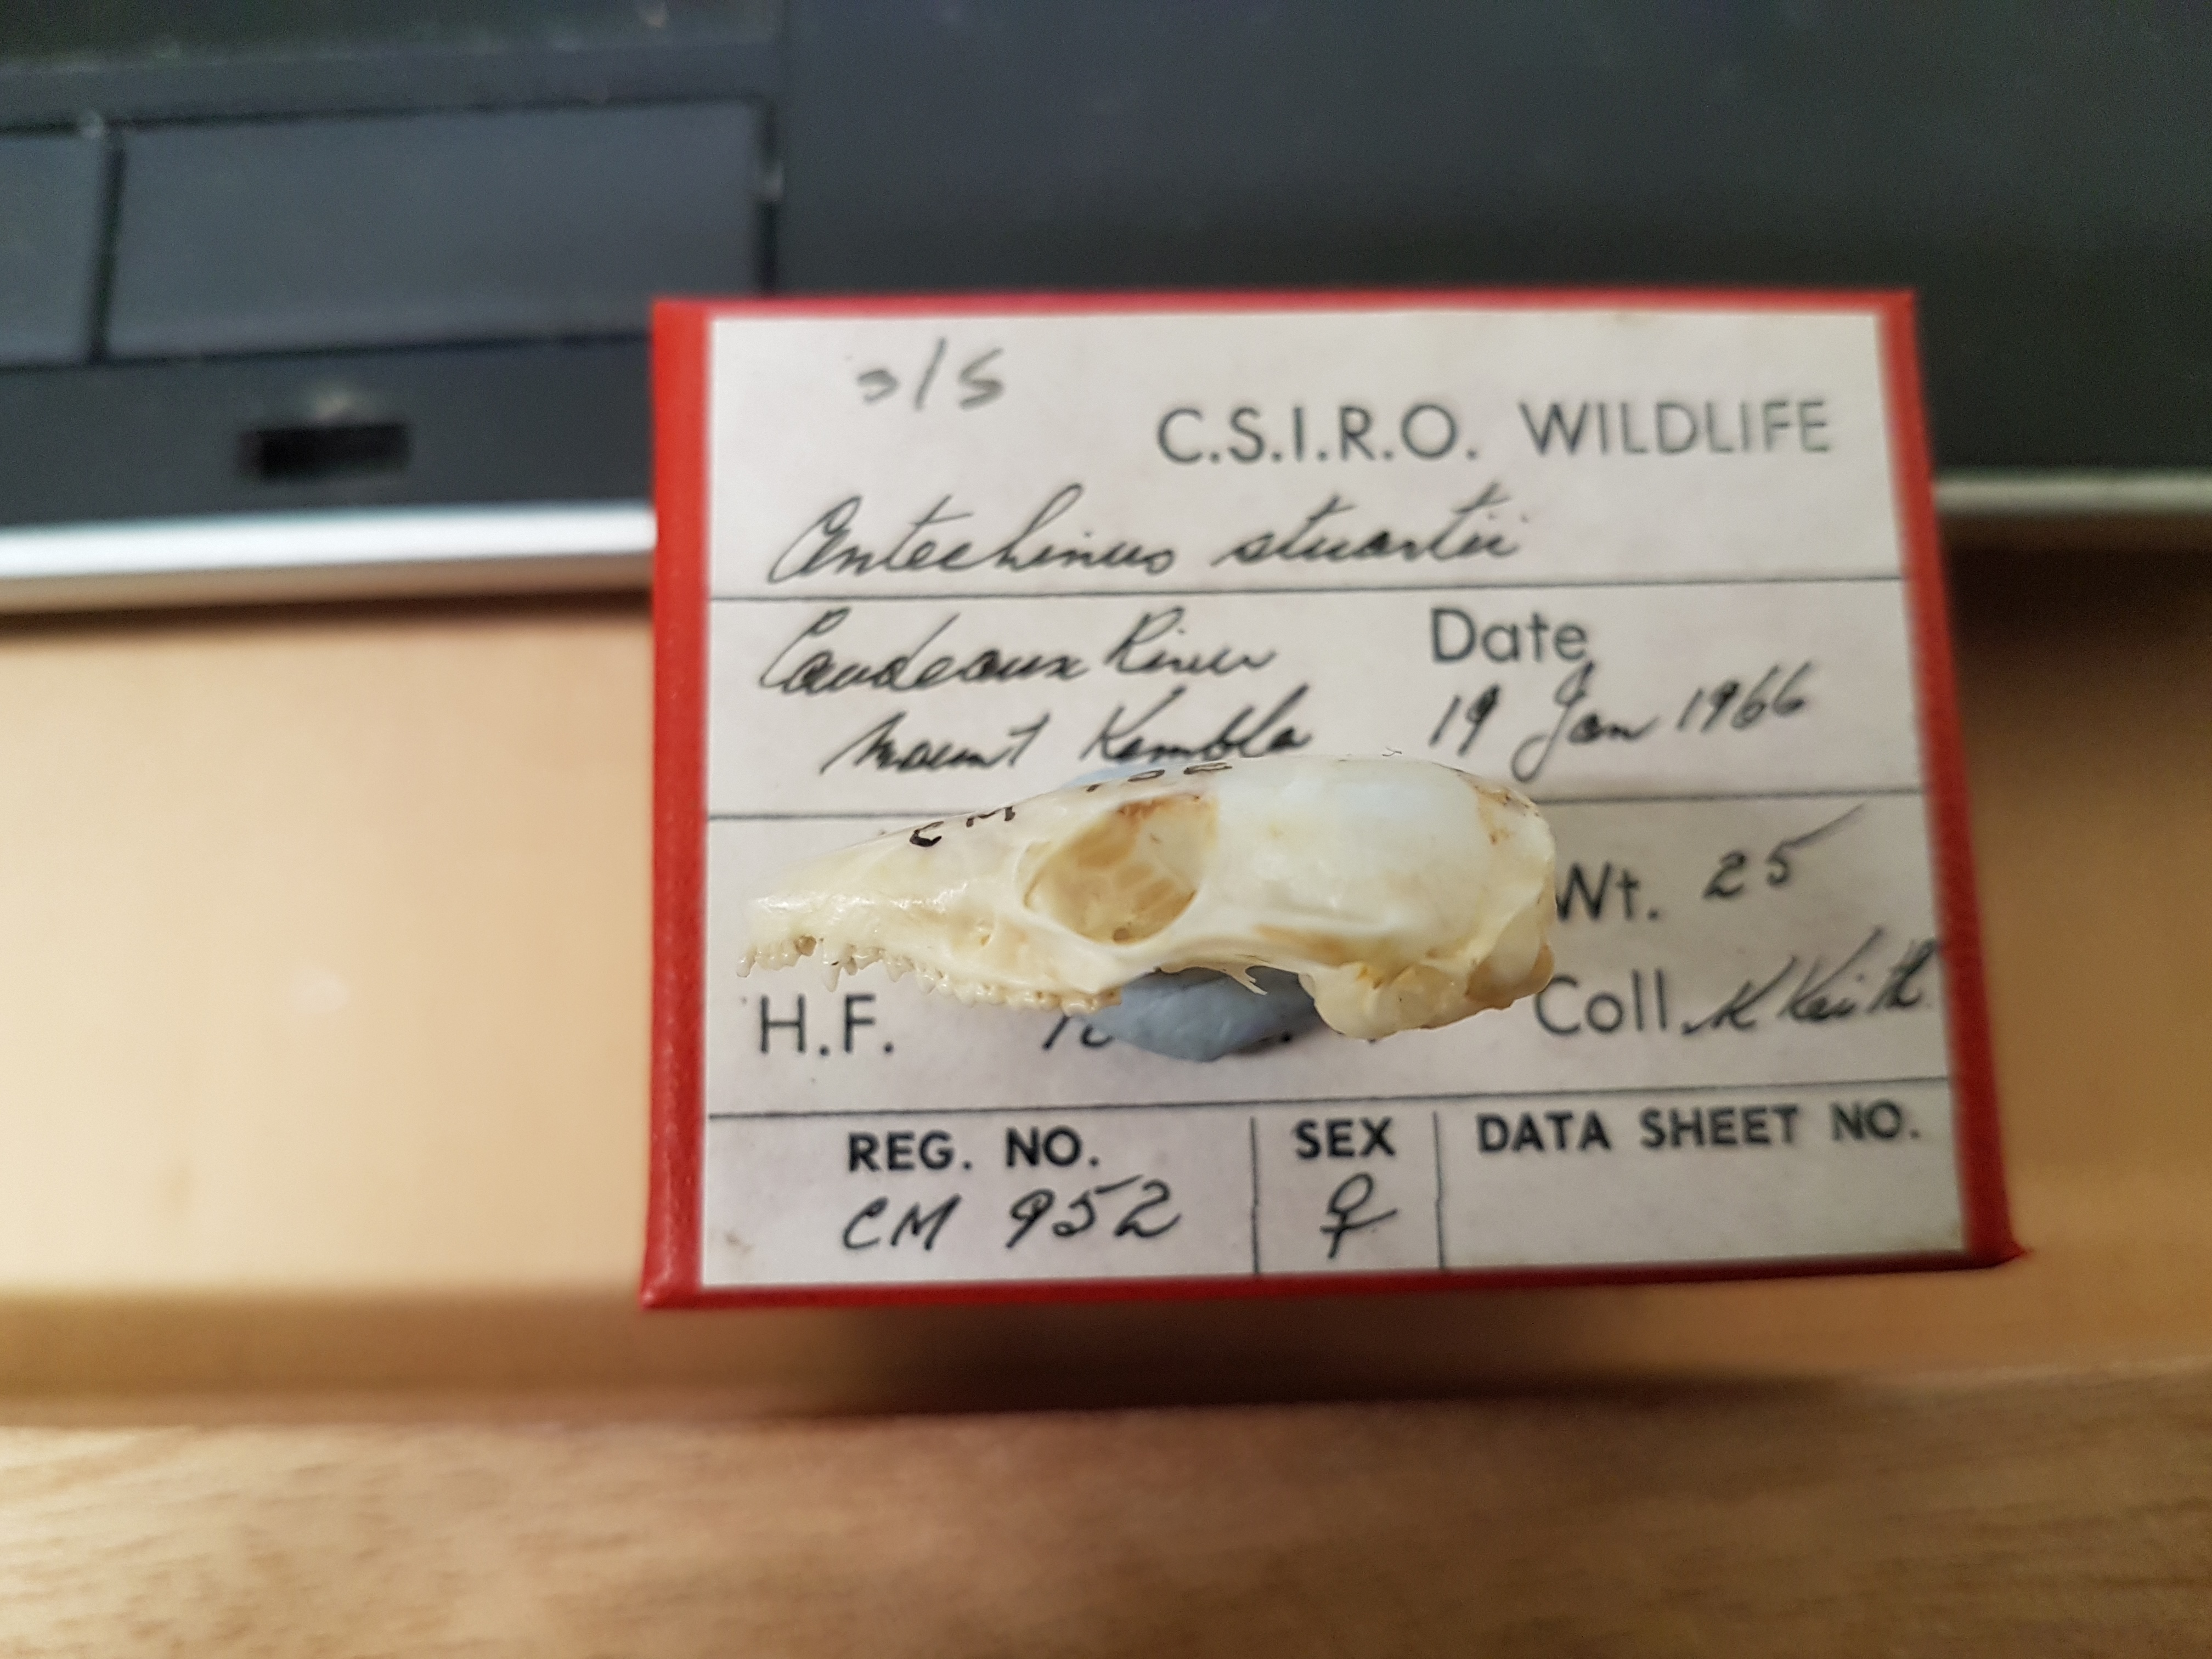 3/5
C.S.I.R.O. WILDLIFE
Antechinus stuartii
Cordeaux River
Mount Kembla
Date
19 Jan 1966
CM
Wt. 25
H.F.
Coll. K Keith
REG. NO.
CM 952
SEX
♀
DATA SHEET NO.